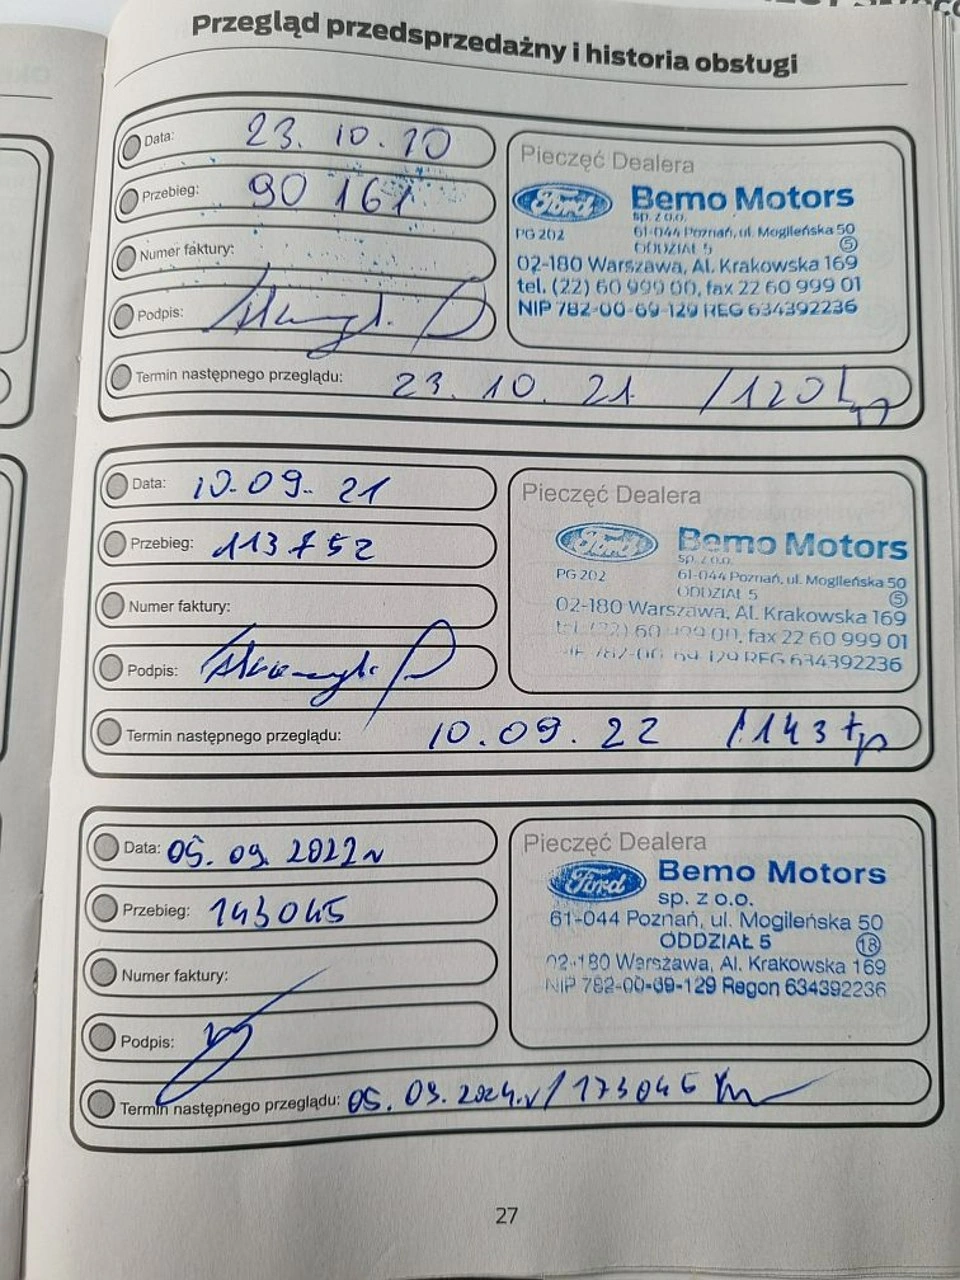 Przegląd przedsprzedażny i historia obsługi
Data: 23. 10. 20
Przebieg: 90 161
Numer faktury:
Podpis:
Pieczęć Dealera
Ford Bemo Motors
sp. z o.o.
PG 202 61-044 Poznań, ul. Mogileńska 50
ODDZIAŁ 5 5
02-180 Warszawa, Al. Krakowska 169
tel. (22) 60 999 00, fax 22 60 999 01
NIP 782-00-69-129 REG 634392236
Termin następnego przeglądu: 23. 10. 21 /120
Data: 10.09.21
Przebieg: 113 752
Numer faktury:
Podpis:
Pieczęć Dealera
Ford Bemo Motors
sp. z o.o.
PG 202 61-044 Poznań, ul. Mogileńska 50
ODDZIAŁ 5 5
02-180 Warszawa, Al. Krakowska 169
tel. (22) 60 999 00, fax 22 60 999 01
NIP 782-00-69-129 REG 634392236
Termin następnego przeglądu: 10.09.22 /143
Data: 05.09.2022
Przebieg: 143045
Numer faktury:
Podpis:
Pieczęć Dealera
Ford Bemo Motors
sp. z o.o.
61-044 Poznań, ul. Mogileńska 50
ODDZIAŁ 5 18
02-180 Warszawa, Al. Krakowska 169
NIP 782-00-69-129 Regon 634392236
Termin następnego przeglądu: 05.09.2024 / 173045
27